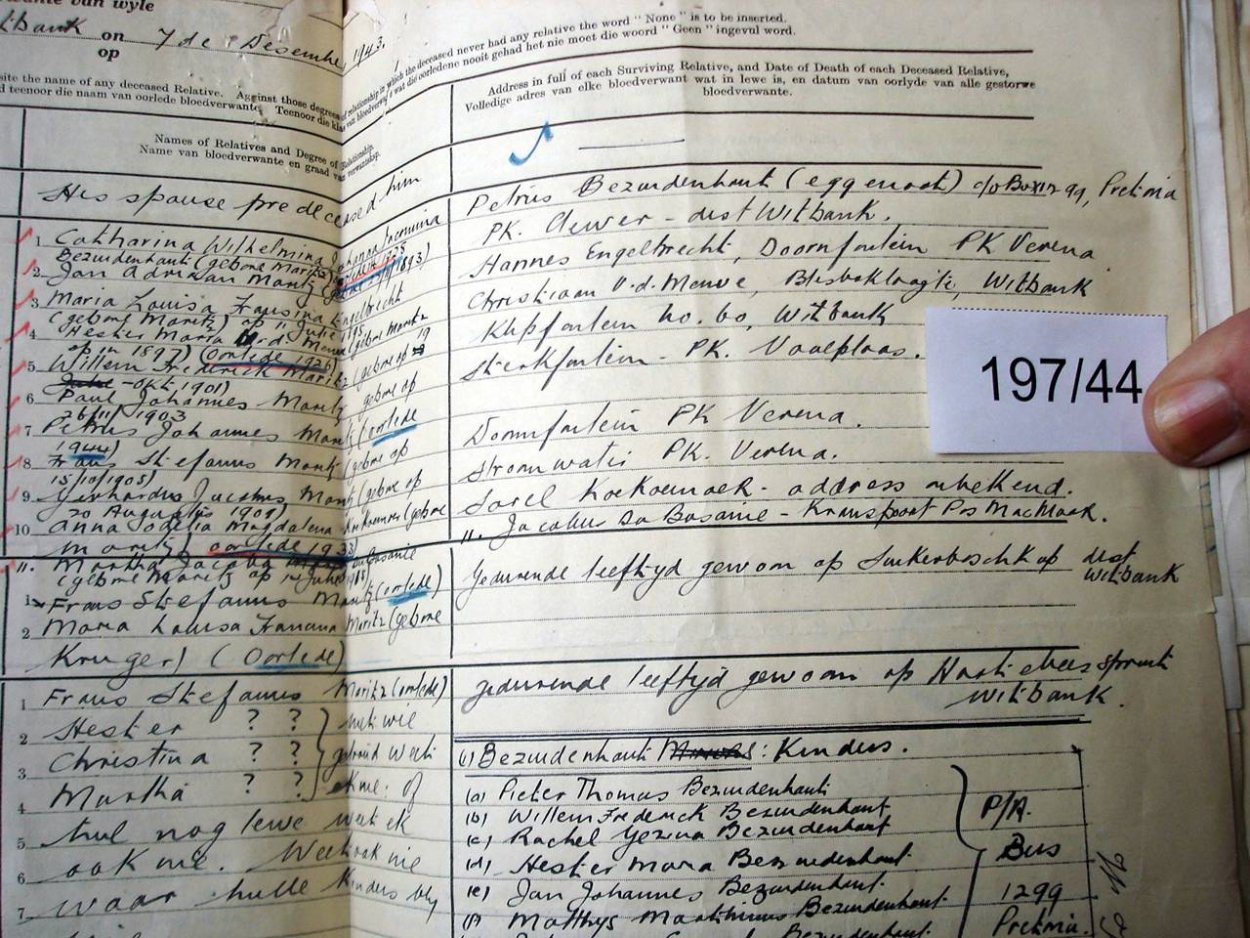 wante van wyle
tbank on 7de Desember 1943.
op
relationship in which the deceased never had any relative the word "None" is to be inserted.
van bloedverwant wat die oorledene nooit gehad het nie moet die woord "Geen" ingevul word.
site the name of any deceased Relative. Against those degrees
teenoor die naam van oorlede bloedverwante. Teenoor die
Names of Relatives and Degree of Relationship.
Name van bloedverwante en graad van verwantskap.
Address in full of each Surviving Relative, and Date of Death of each Deceased Relative,
Volledige adres van elke bloedverwante wat in lewe is, en datum van oorlyde van alle gestorwe
bloedverwante.
His spouse predeceased him
1 Catharina Wilhelmina Johanna Jacomina
Bezuidenhout (gebore Maritz)
2. Jan Adriaan Maritz 1893)
3 Maria Louisa Fransina Engelbrecht
(gebore Maritz) op 11 Julie 1895
4 Hester Maria v.d. Merwe (gebore Maritz
op in 1897) (Oorlede 1926)
5 Willem Frederick Maritz (gebore op 19
Okt 1901)
6 Paul Johannes Maritz gebore op
26/11/1903
7 Petrus Johannes Maritz (oorlede
1944)
8 Frans Stefanus Maritz (gebore op
15/10/1905)
9 Gerhardus Jacobus Maritz (gebore op
20 Augustus 1908)
10 Anna Magdalena (gebore
Maritz) oorlede 1933)
11. Martha Jacoba
(gebore Maritz op
1 Frans Stefanus Maritz (oorlede)
2 Maria Louisa Maritz (gebore
Kruger) (Oorlede)
1 Frans Stefanus Maritz (oorlede)
2 Hester ? ? met wie
3 Christina ? ? getroud weet
4 Martha ? ? ek nie. of
5 hul nog lewe weet ek
6 ook nie. Weet ook nie
7 waar hulle kinders bly
Petrus Bezuidenhout (eggenoot) c/o Box 1299, Pretoria
PK. Clewer - dist Witbank.
Hannes Engelbrecht, Doornfontein PK Verena
Christiaan v.d. Merwe, Blesboklaagte, Witbank
Klipfontein No. 60, Witbank
Sterkfontein - PK. Vaalplaas.
Doornfontein PK Verena.
Stroomwater PK. Verena.
Sarel Koekemoer - address onbekend.
11. Jacobus Du Bosanie - Kranspoort Pos
Gedurende leeftyd gewoon op Suikerboschkop dist
Witbank
gedurende leeftyd gewoon op Hartebeesspruit
Witbank.
(1) Bezuidenhout : Kinders.
(a) Pieter Thomas Bezuidenhout
(b) Willem Frederick Bezuidenhout
(c) Rachel Gezina Bezuidenhout
(d) Hester Maria Bezuidenhout.
(e) Jan Johannes Bezuidenhout.
(f) Matthys Marthinus Bezuidenhout.
P/A.
Bus
1299
Pretoria.
197/44